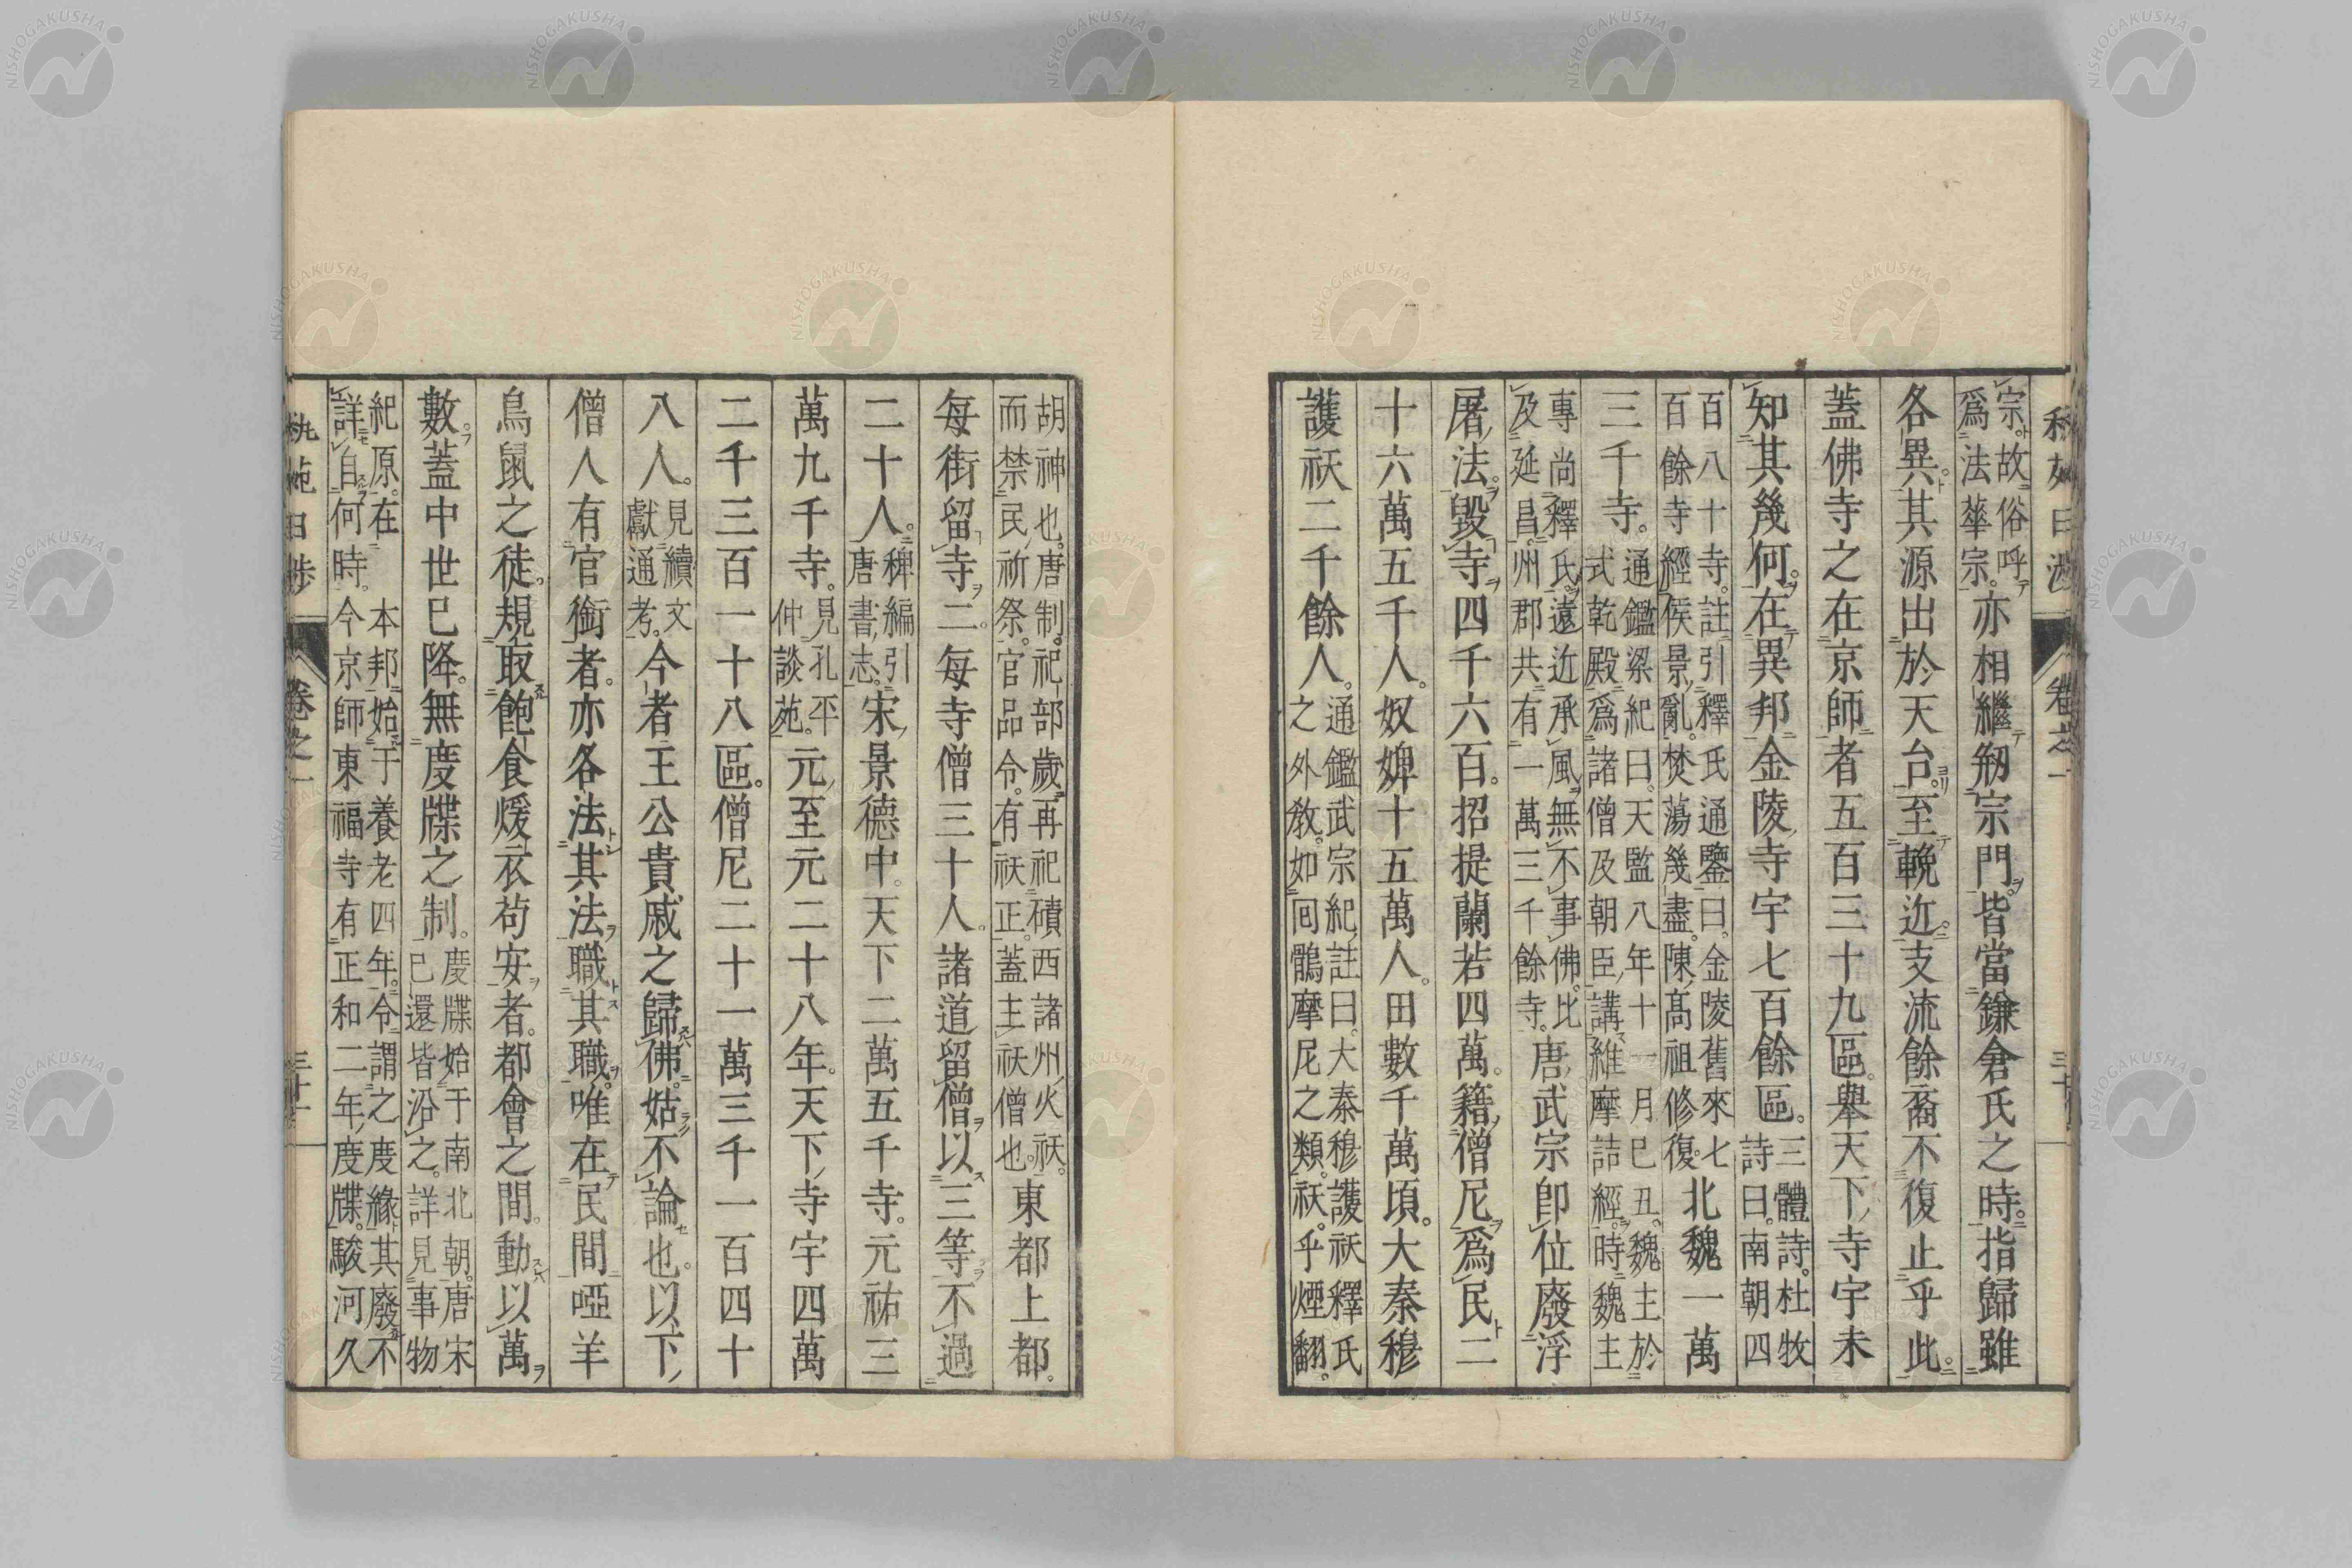 宗。故俗呼
爲法華宗。亦相繼剏宗門。皆當鎌倉氏之時。指歸雖
各異。其源出於天台。至輓近。支流餘裔不復止乎此。
蓋佛寺之在京師者五百三十九區。舉天下寺宇未
知其幾何。在異邦。金陵寺宇七百餘區。三體詩。杜牧詩曰。南朝四
百八十寺。註引釋氏通鑒曰。金陵舊來七百餘寺。經侯景亂。焚蕩幾盡。陳高祖修復。北魏一萬
三千寺。通鑑梁紀曰。天監八年十一月己丑。魏主於式乾殿爲諸僧及朝臣講維摩詰經。時魏主
專尚釋氏。遠近承風。無不事佛。比及延昌。州郡共有一萬三千餘寺。唐武宗卽位廢浮
屠法。毀寺四千六百。招提蘭若四萬。籍僧尼爲民二
十六萬五千人。奴婢十五萬人。田數千萬頃。大秦穆
護祆二千餘人。通鑑武宗紀註曰。大秦穆護祆釋氏之外教。如回鶻摩尼之類。祆。乎煙翻。
胡神也。唐制。祀部歲再祀磧西諸州火祆。而禁民祈祭。官品令。有祆正。蓋主祆僧也。東都上都。
每街留寺二。每寺僧三十人。諸道留僧以三等不過
二十人。稗編引唐書志。宋景德中。天下二萬五千寺。元祐三
萬九千寺。見孔平仲談苑。元至元二十八年。天下寺宇四萬
二千三百一十八區。僧尼二十一萬三千一百四十
八人。見續文獻通考。今者王公貴戚之歸佛。姑不論也。以下
僧人有官銜者。亦各法其法職其職。唯在民間啞羊
鳥鼠之徒。規取飽食煖衣苟安者。都會之間。動以萬
數。蓋中世已降。無度牒之制。度牒始于南北朝。唐宋已還皆沿之。詳見事物
紀原。在本邦始于養老四年。令謂之度緣。其廢不詳自何時。今京師東福寺有正和二年度牒。駿河久
卷之一
卷之一